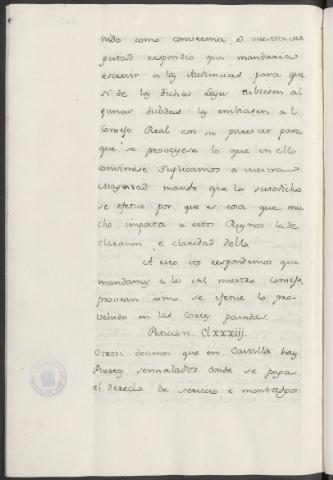 nido como convernia, e vuestra ma
gestad respondio que mandaria
escreuir a las Audiencias para que
si de las dichas Leyes tubiesen al
gunas dubdas las embiasen al
Consejo Real con su parescer para
que se proveyese lo que en ello
conviniese Suplicamos a vuestra
Magestad mande que lo susodicho
se efetue por que es cosa que mu
cho importa a estos Reynos la de
claracion e claridad dello
A esto vos respondemos que
mandamos a los del nuestro Consejo,
provean como se efetue lo pro-
vehido en las Cortes pasadas.
Peticion. Clxxxiij.
Otrosi decimos que en Castilla hay
Puertos sennalados donde se paga
el derecho de servicio e montadgo